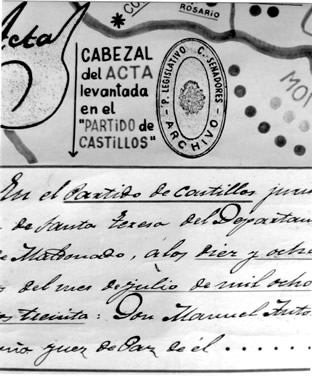 Acta
ROSARIO
CABEZAL
del ACTA
levantada
en el
"PARTIDO de
CASTILLOS"
P. LEGISLATIVO C. SENADORES
ARCHIVO
En el Partido de Castillos
de Santa Teresa del Departam
de Maldonado, á los diez y ocho
del mes de julio de mil ocho
treinta: Don Manuel Anto
juez de Paz de él . . . . . . .